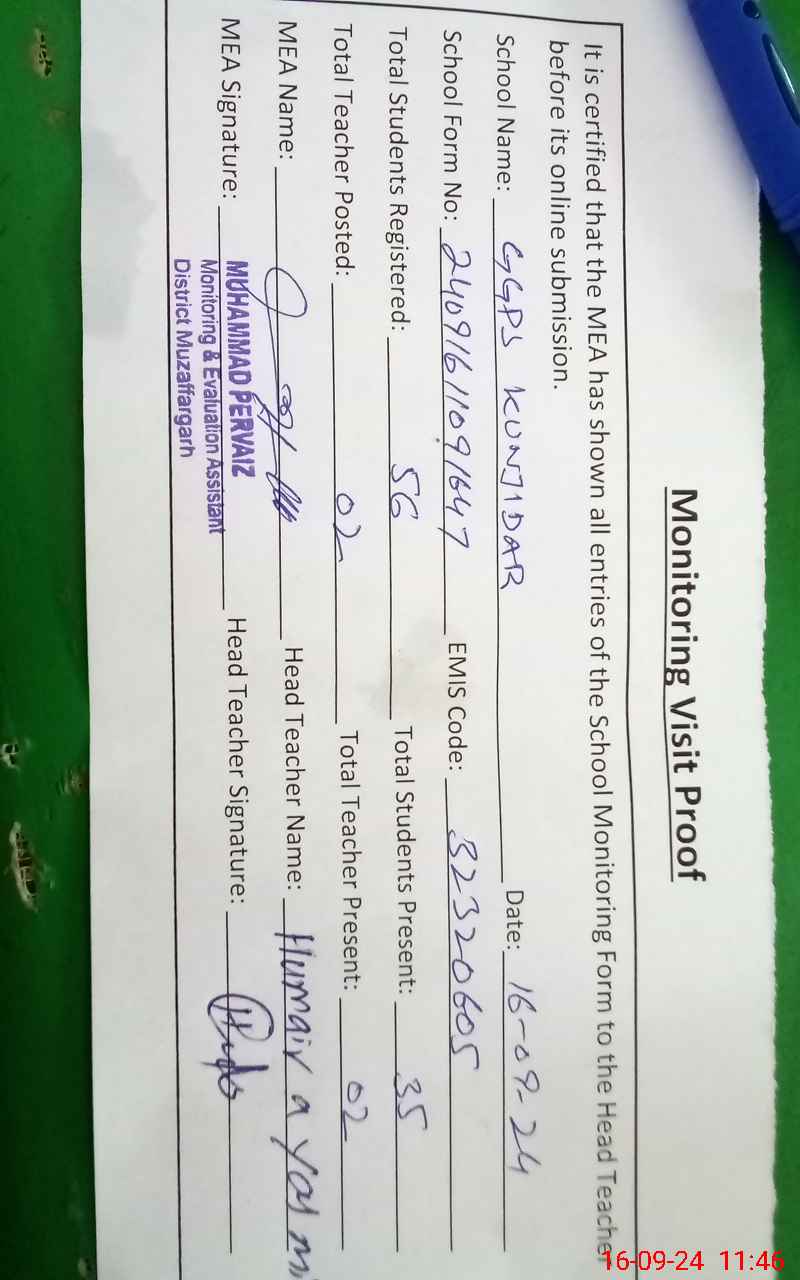 Monitoring Visit Proof
It is certified that the MEA has shown all entries of the School Monitoring Form to the Head Teacher
before its online submission.
School Name: GGPS KUNJIDAR Date: 16-09-24
School Form No: 2409161109 1647 EMIS Code: 32320605
Total Students Registered: 56 Total Students Present: 35
Total Teacher Posted: 02 Total Teacher Present: 02
MEA Name: Head Teacher Name: Humair a Yas
MEA Signature: Head Teacher Signature:
MUHAMMAD PERVAIZ
Monitoring & Evaluation Assistant
District Muzaffargarh
16-09-24 11:46